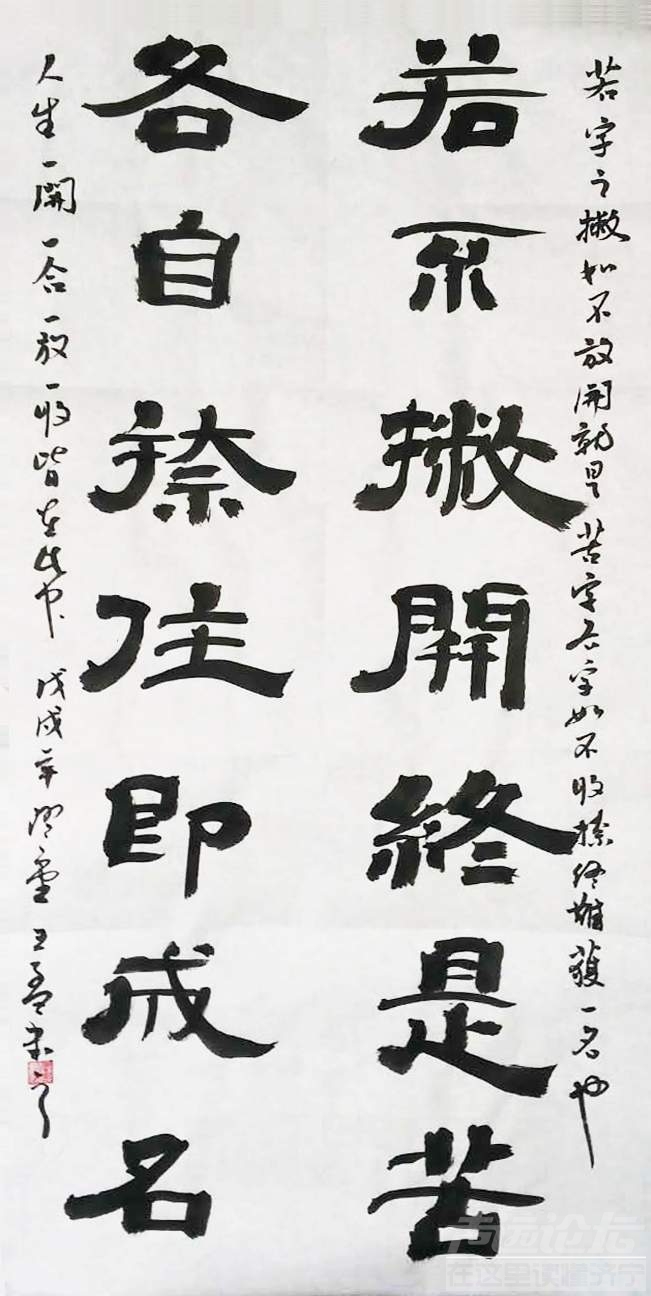 若字之撇如不放開就是苦字各字如不收捺終難獲一名也
若不撇開終是苦
各自捺住即成名
人生一開一合一放一收皆在此中 戊戌年 王
在这里读懂济宁